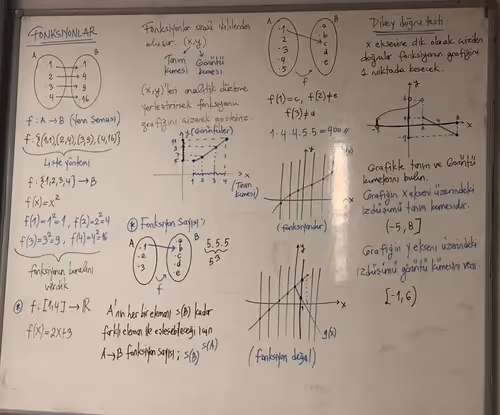 FONKSİYONLAR
A B
.1 .1
.2 .4
.3 .9
.4 .16
f: A→B (Venn Şeması)
f: {(1,1)(2,4),(3,9),(4,16)}
Liste yöntemi
f: {1,2,3,4} → B
f(x)=x²
f(1)=1²=1, f(2)=2²=4
f(3)=3²=9, f(4)=4²=16
fonksiyonun kuralını
verdik
f: [1,4] → ℝ
f(x)=2x+3
Fonksiyonlar sıralı ikililerden
oluşur. (x,y)
Tanım Görüntü
kümesi kümesi
(x,y)'leri analitik düzleme
yerleştirirsek fonksiyonu
grafiğini çizerek gösteririz.
y (Görüntüler)
11
9
7
5
1 2 3 4
x
(Tanım
kümesi)
Fonksiyon Sayısı:
A B
.1 .a
.2 .b
.3 .c
.d
.e
f
5.5.5
5³
A'nın her bir elemanı s(B) kadar
farklı eleman ile eşleşebileceği için
A→B fonksiyon sayısı; s(B)^s(A)
A B
.1 .a
.2 .b
.3 .c
.4 .d
.5 .e
f
f(1)=c, f(2)≠e
f(3)≠a
1.4.4.5.5=400
y
x
(fonksiyondur)
y
x
g(x)
(fonksiyon değil)
Dikey doğru testi:
x eksenine dik olarak çizilen
doğrular fonksiyonun grafiğini
1 noktada kesecek.
y
6
-5
8
x
-1
Grafikte tanım ve Görüntü
kümelerini bulun.
Grafiğin x ekseni üzerindeki
izdüşümü tanım kümesidir.
(-5, 8]
Grafiğin y ekseni üzerindeki
izdüşümü görüntü kümesini verir.
[-1, 6)